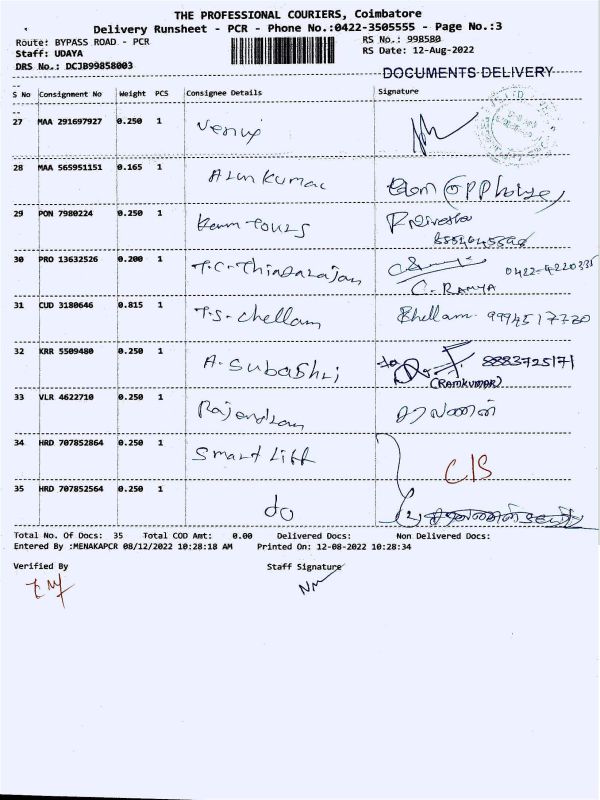 THE PROFESSIONAL COURIERS, Coimbatore
Delivery Runsheet - PCR - Phone No.:0422-3505555 - Page No.:3
Route: BYPASS ROAD - PCR
RS No.: 998580
Staff: UDAYA
RS Date: 12-Aug-2022
DRS No.: DCJB99858003
DOCUMENTS DELIVERY
S No Consignment No Weight PCS Consignee Details Signature
27 MAA 291697927 0.250 1 Venus
28 MAA 565951151 0.165 1 Arun Kumar
29 PON 7980224 0.250 1 Tours
30 PRO 13632526 0.200 1 T.C. Thiagarajan 0422-4220335
C. RAMYA
31 CUD 3180646 0.815 1 T.S. Chellam Bhellam. 9994517730
32 KRR 5509480 0.250 1 A. Subashri 8883725171
(RAMKUMAR)
33 VLR 4622710 0.250 1 Rajendran சரவணன்
34 HRD 707852864 0.250 1 Smart Lift C/S
35 HRD 707852564 0.250 1 do (2)
Total No. Of Docs: 35 Total COD Amt: 0.00 Delivered Docs: Non Delivered Docs:
Entered By :MENAKAPCR 08/12/2022 10:28:18 AM Printed On: 12-08-2022 10:28:34
Verified By Staff Signature